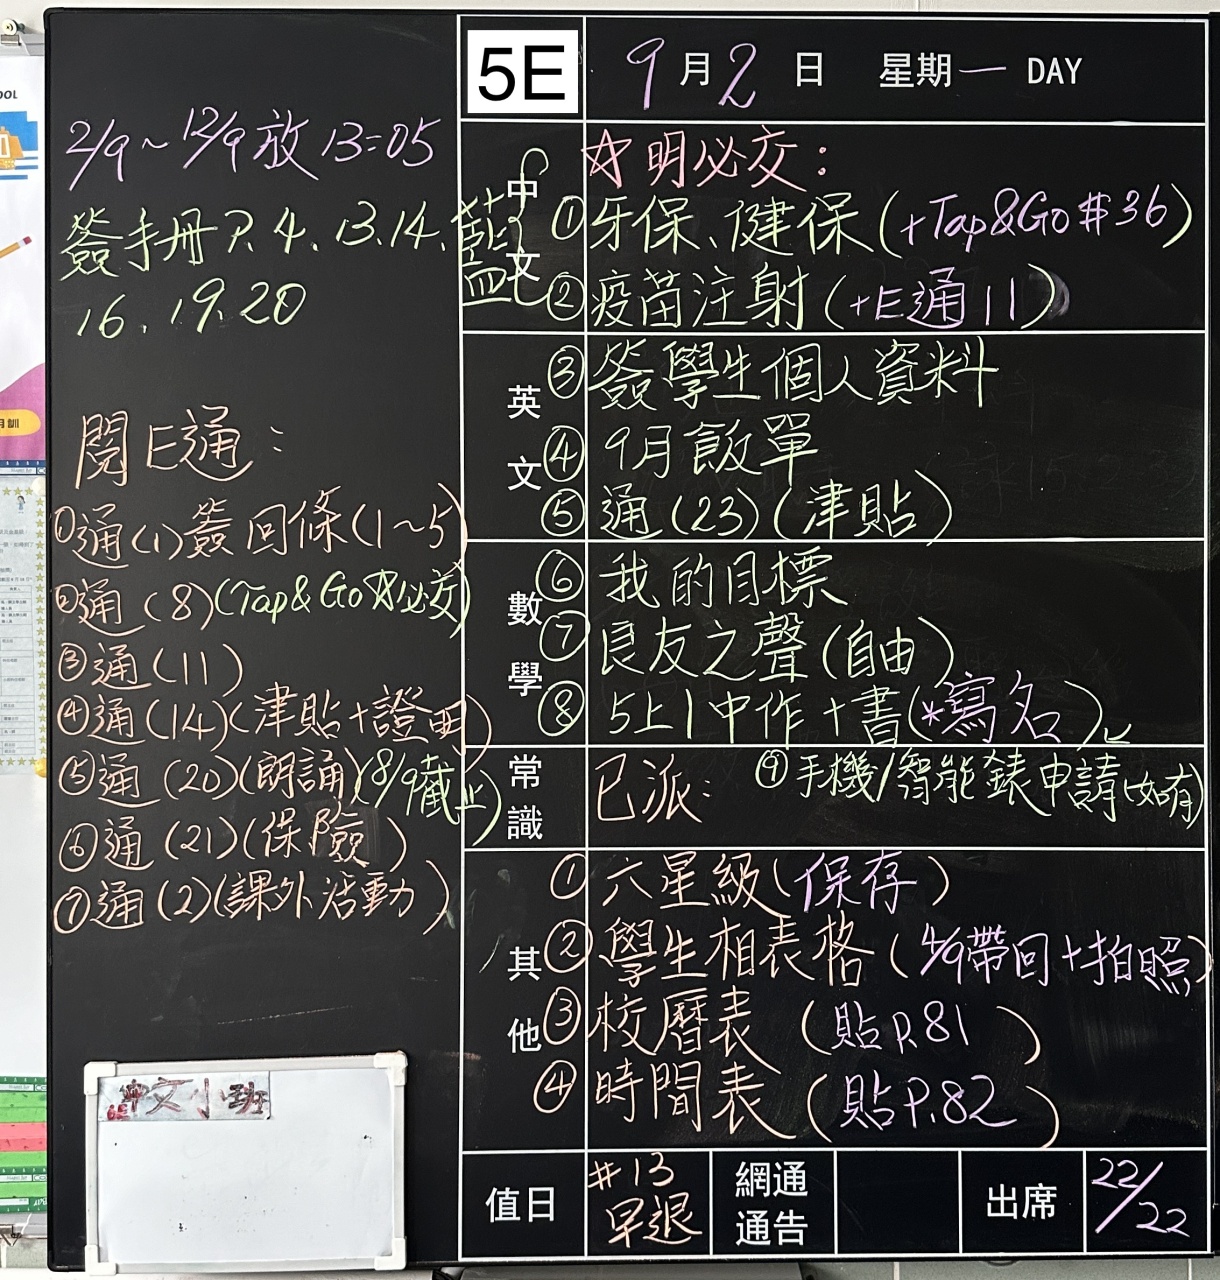 5E
9月2日 星期一 DAY
2/9~12/9放13:05
簽手冊P.4、13.14、藍
16、19.20
閱E通：
①通(1)簽回條(1~5)
②通(8)(Tap&Go☆必交)
③通(11)
④通(14)(津貼+證明)
⑤通(20)(朗誦)(8/9截止)
⑥通(21)(保險)
⑦通(2)(課外活動)
中文小班
中文
☆明必交：
①牙保、健保(+Tap&Go#36)
②疫苗注射(+E通11)
英文
③簽學生個人資料
④9月飯單
⑤通(23)(津貼)
數學
⑥我的目標
⑦良友之聲(自由)
⑧5上1中作+書(*寫名)
常識
⑨手機/智能錶申請(如有)
已派：
其他
①六星級(保存)
②學生相表格(4/9帶回+拍照)
③校曆表(貼P.81)
④時間表(貼P.82)
值日
#13
早退
網通
通告
出席
22/22